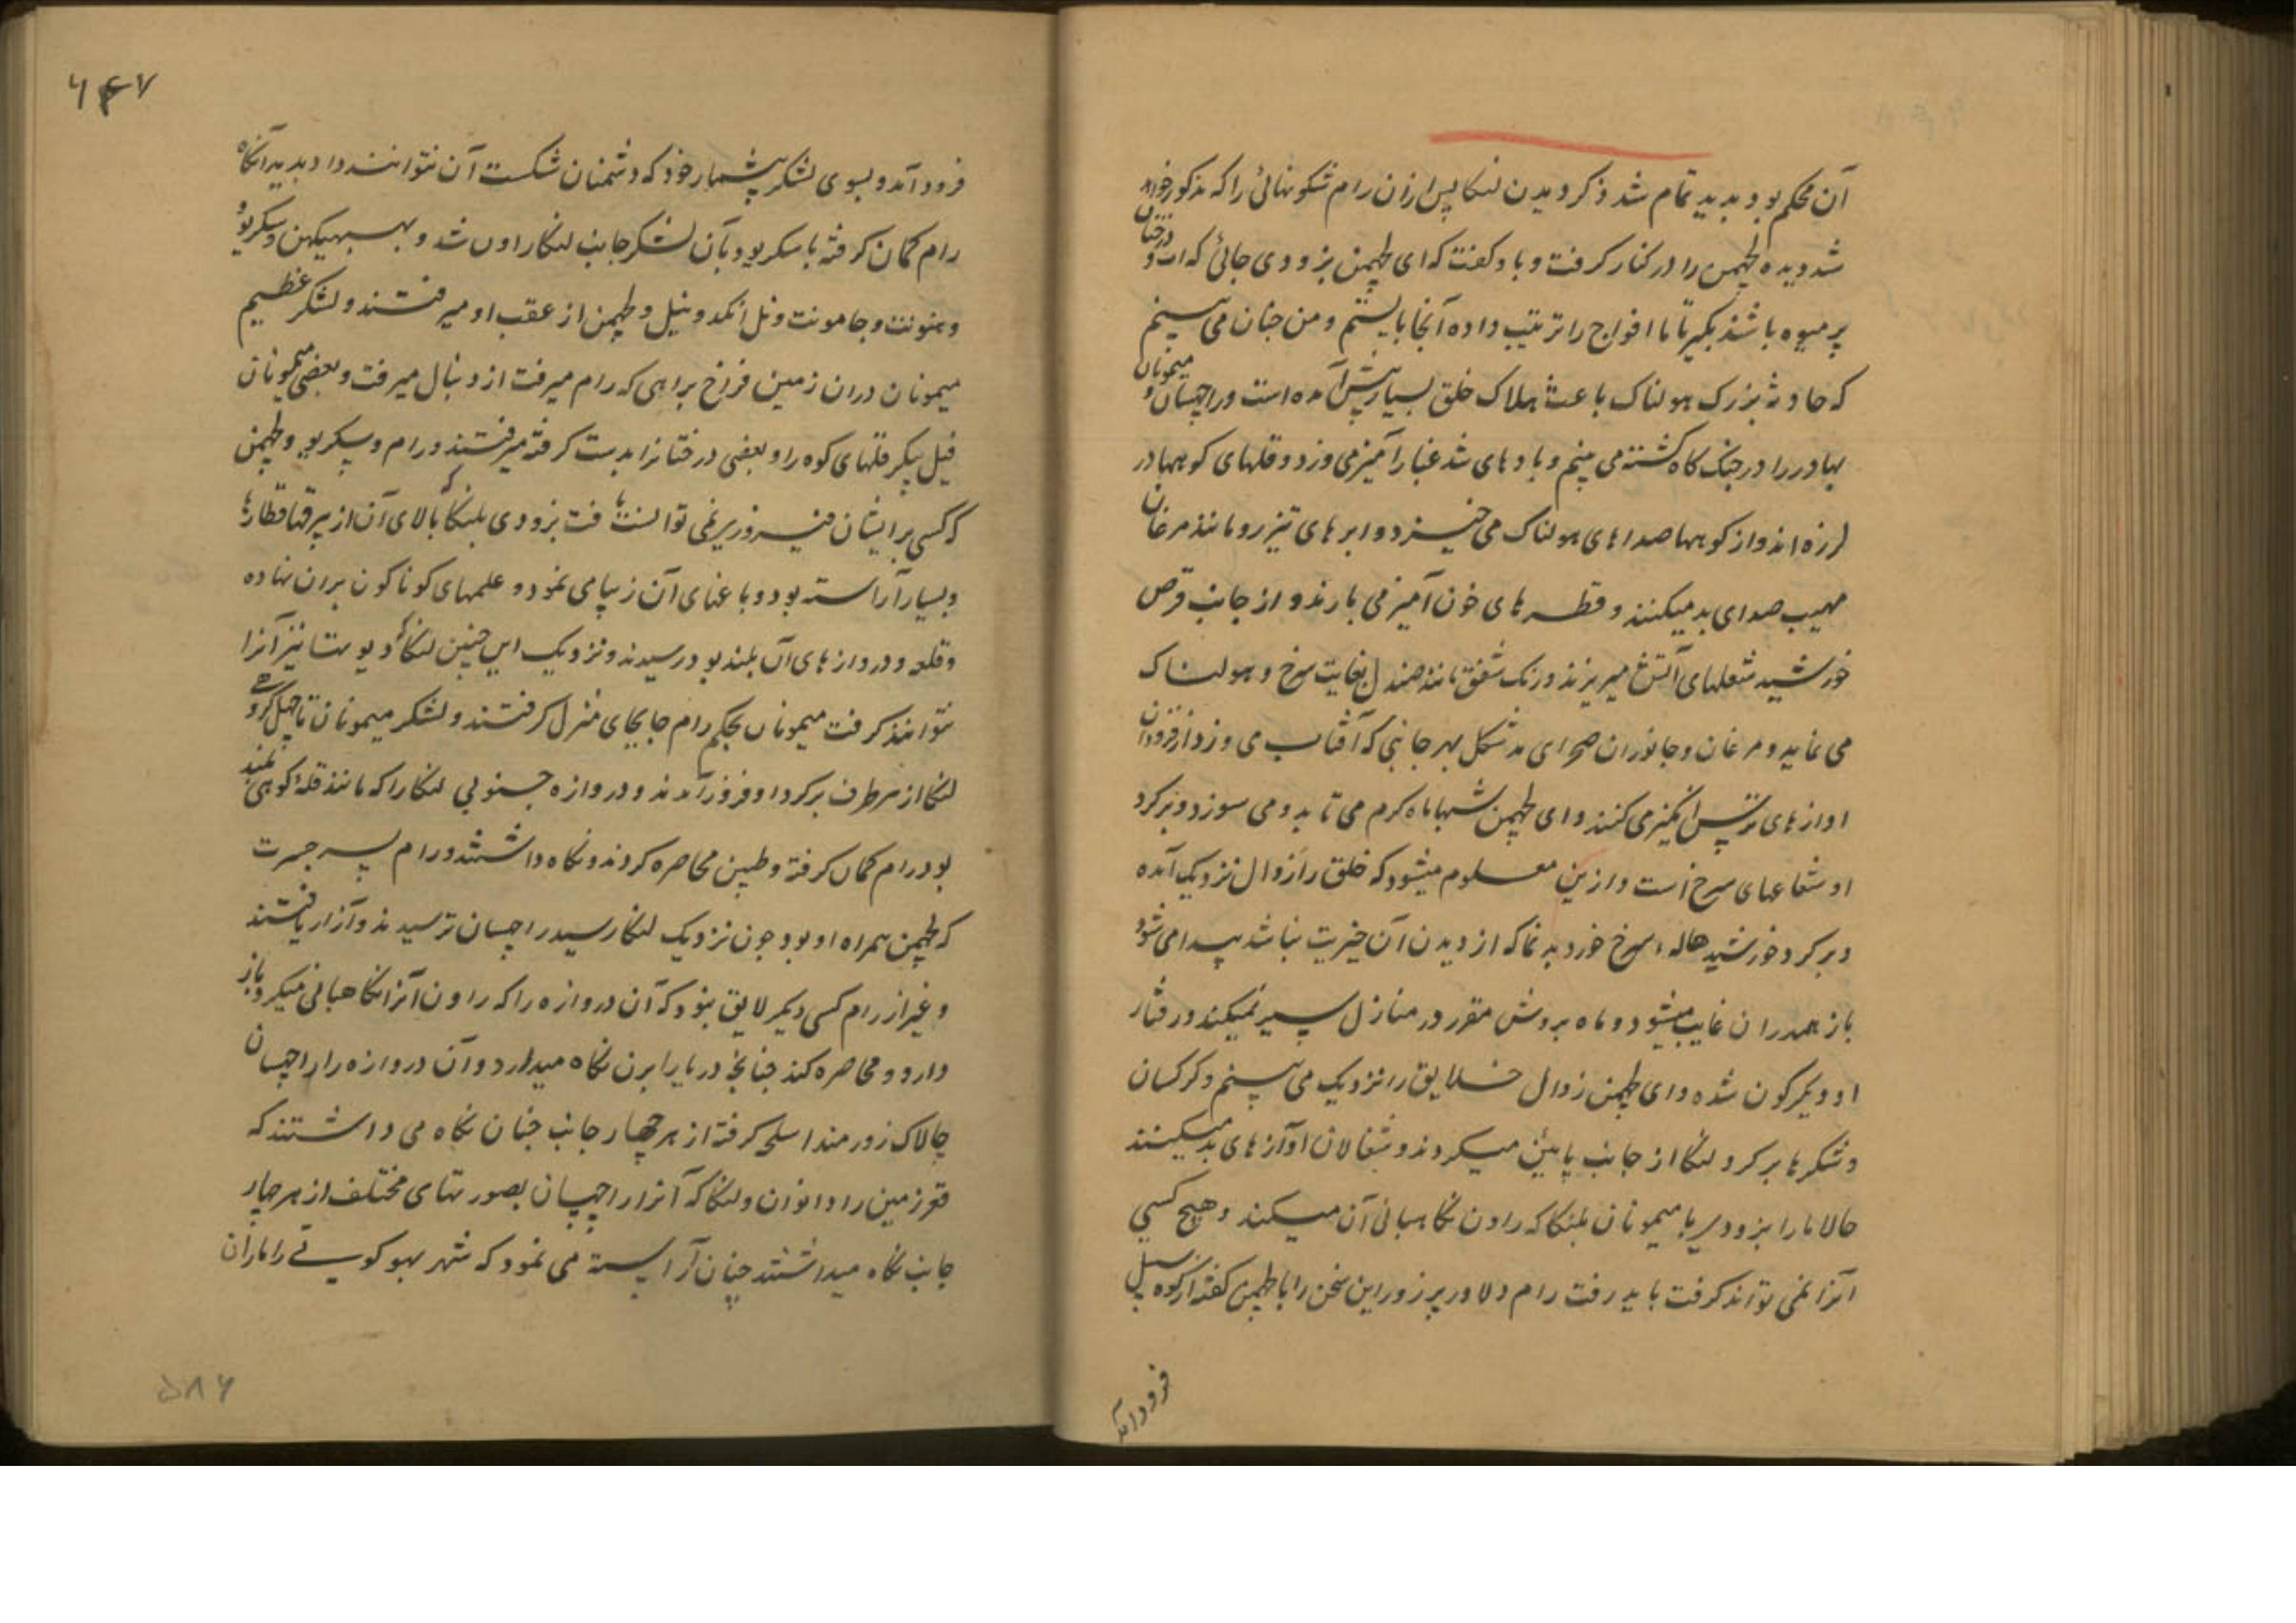 آن محکم بود بدید تمام شد ذکر دیدن لنکا پس ازان رام شکونهائی را که مذکور خواهد
شد دیده لچهمن را در کنار کرفت و باو کفت که ای لچهمن بزودی جائی که آب و درختان
پر میوه باشد بکیر تا ما افواج را ترتیب داده آنجا بایستیم و من چنان می بینم
که حادثهٔ بزرک هولناک باعث هلاک خلق بسیار پیش آمده است و راچهسان و میمونان
بهادر را در جنک کاه کشته می بینم و بادهای تند غبار آمیز می وزد و قلهای کوهها در
لرزه اند و از کوهها صداهای هولناک می خیزد و ابرهای تیز رو مانند مرغان
مهیب صدای بد میکنند و قطره های خون آمیز می بارند و از جانب قرص
خورشید شعلهای آتش میریزند و رنک شفق مانند صندل بغایت سرخ و هولناک
می نماید و مرغان و جانوران صحرای بد شکل بهر جانبی که آفتاب می
اوازهای ترس انکیز می کنند و ای لچهمن شبها ماه کرم می تابد و می سوزد و بر کرد
او شعاعهای سرخ است و ازین معلوم میشود که خلق را زوال نزدیک آمده
و بر کرد خورشید هاله سرخ خورد بد نما که از دیدن آن خیریت نباشد پیدا می شود
باز همدران غایب میشود و ماه بروش مقرر در منازل سیر نمیکند و رفتار
او دیکرکون شده و ای لچهمن زوال خلایق را نزدیک می بینم و کرکسان
و شکرها بر کرد لنکا از جانب پایین میکردند و شغالان اوازهای بد میکنند
حالا ما را بزودی با میمونان بلنکا که راون نکاهبانی آن میکند و هیچ کسی
آنرا نمی تواند کرفت باید رفت رام دلاور پر زور این سخن را با لچهمن کفته از کوه سبیل
فرود آمد
۶۴۷
فرود آمد و بسوی لشکر بیشمار خود که دشمنان شکست آن نتوانند داد بدید آنکاه
رام کمان کرفته با سکریو و بآن لشکر جانب لنکا راون شد و ببهیکهن و سکریو
و هنونت و جامونت و نل و انکد و نیل و لچهمن از عقب او میرفتند و لشکر عظیم
میمونان دران زمین فراخ براهی که رام میرفت از دنبال میرفت و بعضی میمونان
فیل پیکر قلهای کوه را و بعضی درختانرا بدست کرفته میرفتند و رام و سکریو و لچهمن
که کسی بر ایشان فیروزی نمی توانست یافت بزودی بلنکا که بالای آن از بیرقها قطارها
و بسیار آراسته بود و باغهای آن زیبا می نمود و علمهای کوناکون بران نهاده
و قلعه و دروازهای آن بلند بود رسیدند و نزدیک این چنین لنکا که دیوتها نیز آنرا
نتوانند کرفت میمونان بحکم رام جابجای منزل کرفتند و لشکر میمونان تا چهل کروه
لنکا از هر طرف بر کرد او فرود آمدند و دروازه جنوبی لنکا را که مانند قلهٔ کوهی بلند
بود رام کمان کرفته و لچهمن محاصره کردند و نکاه داشتند و رام پسر جسرت
که لچهمن همراه او بود چون نزدیک لنکا رسید راچهسان ترسیدند و آزار یافتند
و غیر از رام کسی دیکر لایق نبود که آن دروازه را که راون آنرا نکاهبانی میکرد باز
دارد و محاصره کند چنانچه دریا را برن نکاه میدارد و آن دروازه را راچهسان
چالاک زورمند اسلحه کرفته از هر چهار جانب چنان نکاه می داشتند که
قعر زمین را دانوان و لنکا که آنرا راچهسان بصورتهای مختلف از هر چهار
جانب نکاه میداشتند چنان آراسته می نمود که شهر بهوکوتی را ماران
۵۸۶